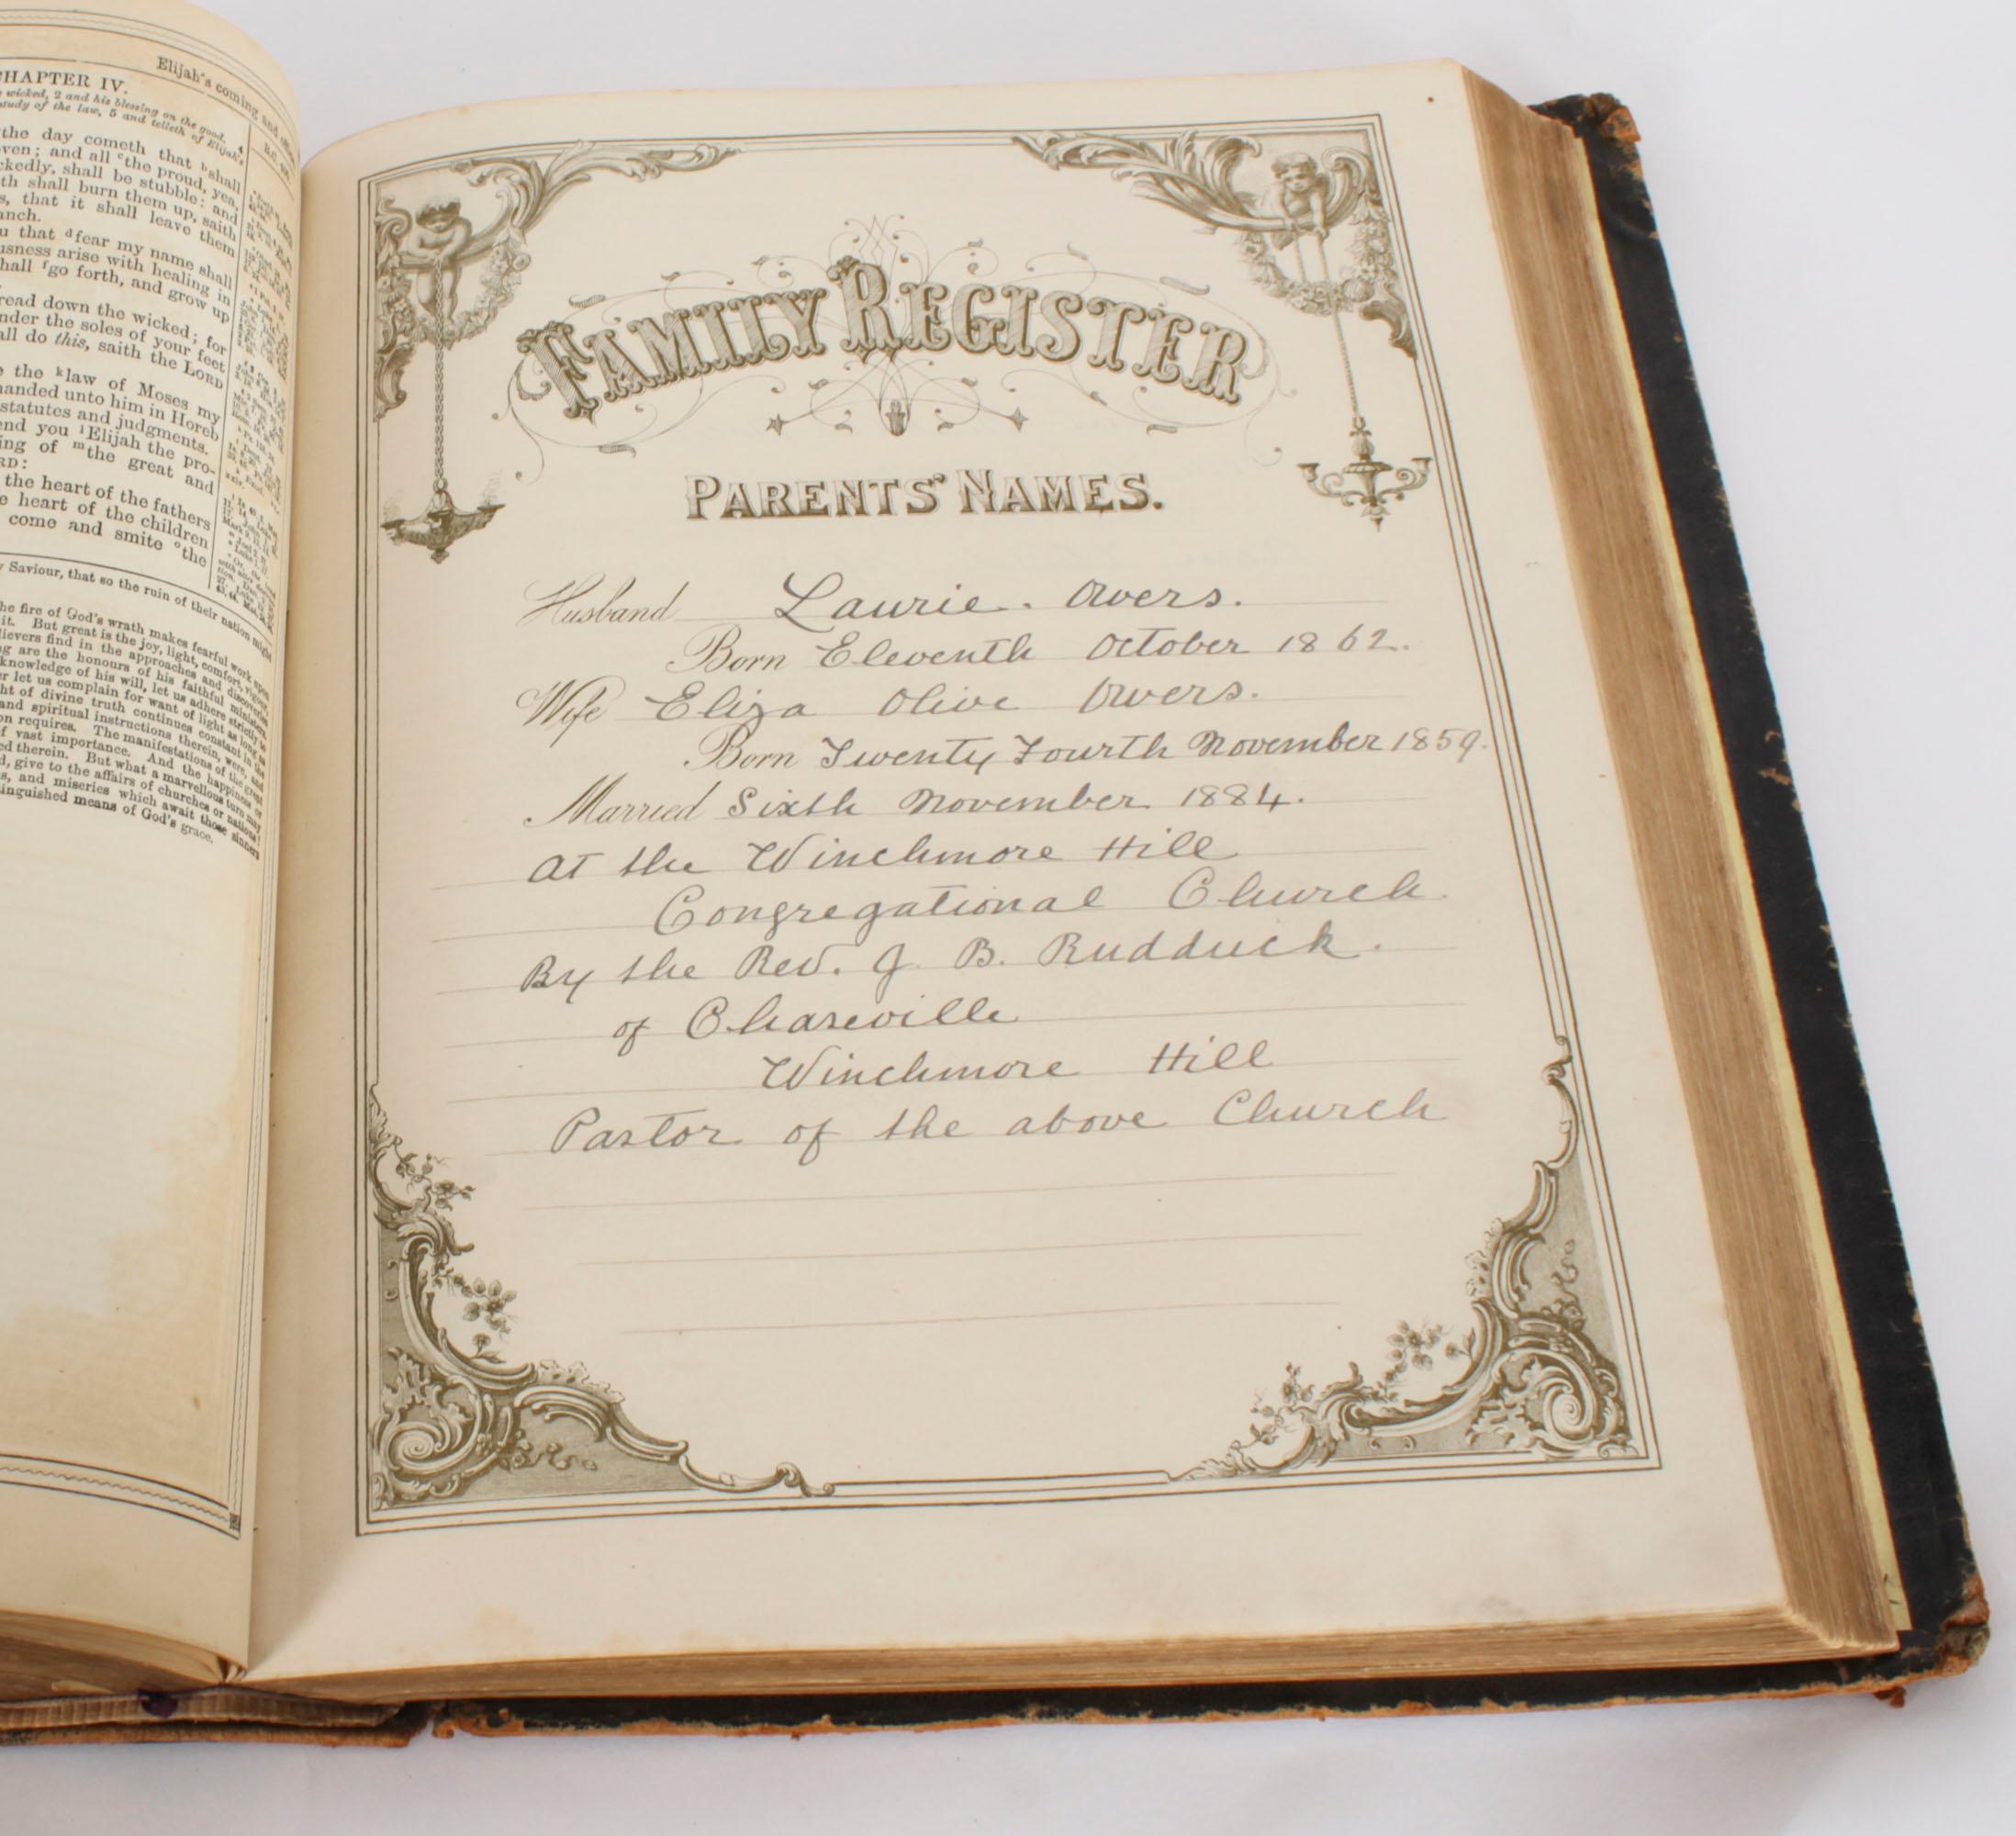 Elijah's coming and
CHAPTER IV.
wicked, 2 and his blessing on the good.
study of the law, 5 and telleth of Elijah's
the day cometh that shall
ven; and all the proud, yea,
ckedly, shall be stubble: and
th shall burn them up, saith
s, that it shall leave them
anch.
u that fear my name shall
usness arise with healing in
hall go forth, and grow up
read down the wicked; for
nder the soles of your feet
all do this, saith the LORD
the law of Moses my
manded unto him in Horeb
statutes and judgments.
end you Elijah the pro-
ing of the great and
RD:
the heart of the fathers
e heart of the children
come and smite the
Saviour, that so the ruin of their nation might
he fire of God's wrath makes fearful work upon
it. But great is the joy, light, comfort, vigour,
lievers find in the approaches and discoveries
ng are the honours of his faithful ministers.
knowledge of his will, let us adhere strictly to
r let us complain for want of light as long as
ht of divine truth continues constant in the
and spiritual instructions therein, were, and
on requires. The manifestations of the great
f vast importance. And the happiness or
ed therein. But what a marvellous turn may
d, give to the affairs of churches or nations!
s, and miseries which await those sinners
inguished means of God's grace.
FAMILY REGISTER
PARENTS' NAMES.
Husband Laurie. Owers.
Born Eleventh October 1862.
Wife Eliza Olive Owers.
Born Twenty Fourth November 1859.
Married Sixth November 1884.
at the Winchmore Hill
Congregational Church.
By the Rev. J. B. Rudduck.
of Chaseville
Winchmore Hill
Pastor of the above Church